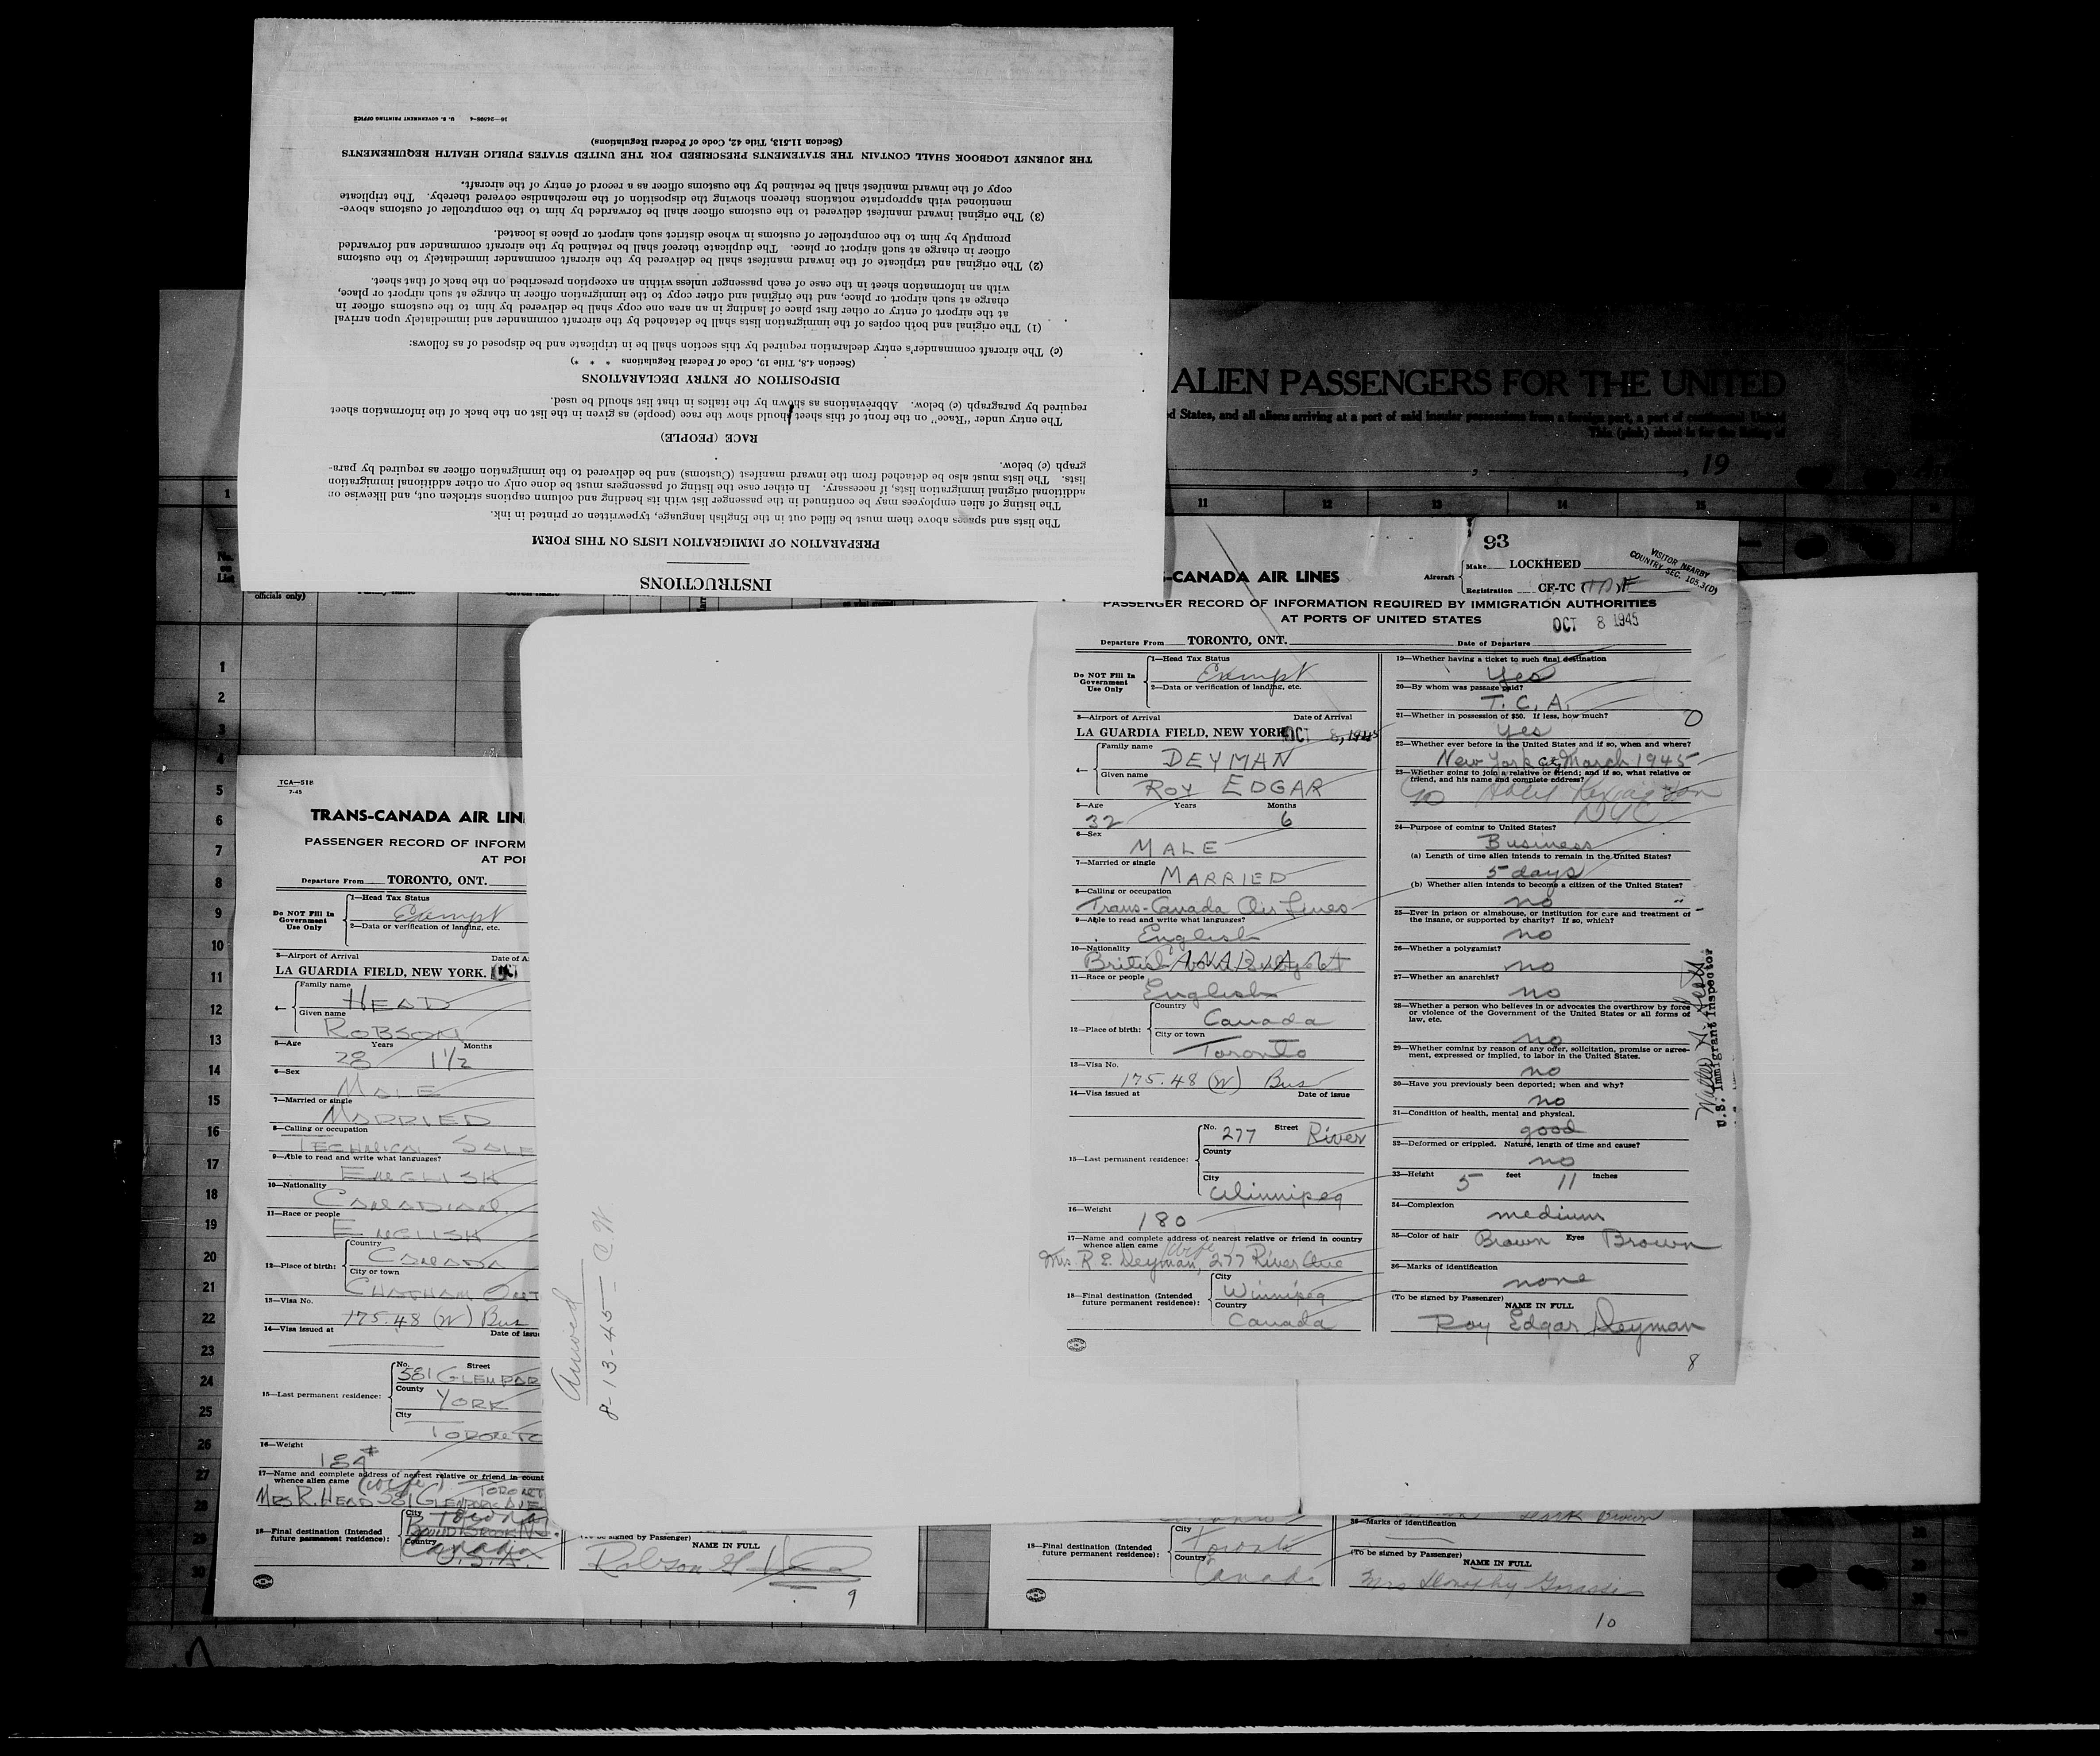 INSTRUCTIONS
PREPARATION OF IMMIGRATION LISTS ON THIS FORM
The lists and spaces above them must be filled out in the English language, typewritten or printed in ink.
The listing of alien employees may be continued in the passenger list with its heading and column captions stricken out, and likewise on
additional original immigration lists, if necessary. In either case the listing of passengers must be done only on other additional immigration
lists. The lists must also be detached from the inward manifest (Customs) and be delivered to the immigration officer as required by para-
graph (c) below.
RACE (PEOPLE)
The entry under "Race" on the front of this sheet should show the race (people) as given in the list on the back of the information sheet
required by paragraph (c) below. Abbreviations as shown by the italics in that list should be used.
DISPOSITION OF ENTRY DECLARATIONS
(Section 4.8, Title 19, Code of Federal Regulations * * *)
(c) The aircraft commander's entry declaration required by this section shall be in triplicate and be disposed of as follows:
(1) The original and both copies of the immigration lists shall be detached by the aircraft commander and immediately upon arrival
at the airport of entry or other first place of landing in an area one copy shall be delivered by him to the customs officer in
charge at such airport or place, and the original and other copy to the immigration officer in charge at such airport or place,
with an information sheet in the case of each passenger unless within an exception prescribed on the back of that sheet.
(2) The original and triplicate of the inward manifest shall be delivered by the aircraft commander immediately to the customs
officer in charge at such airport or place. The duplicate thereof shall be retained by the aircraft commander and forwarded
promptly by him to the comptroller of customs in whose district such airport or place is located.
(3) The original inward manifest delivered to the customs officer shall be forwarded by him to the comptroller of customs above-
mentioned with appropriate notations thereon showing the disposition of the merchandise covered thereby. The triplicate
copy of the inward manifest shall be retained by the customs officer as a record of entry of the aircraft.
THE JOURNEY LOGBOOK SHALL CONTAIN THE STATEMENTS PRESCRIBED FOR THE UNITED STATES PUBLIC HEALTH REQUIREMENTS
(Section 11.513, Title 42, Code of Federal Regulations)
16—24508-4 U. S. GOVERNMENT PRINTING OFFICE
ALIEN PASSENGERS FOR THE UNITED
d States, and all aliens arriving at a port of said insular possessions from a foreign port, a port of
This (pink) sheet is for the listing of
, , 19
1 11 12 13 14 15
No.
on
List
officials only)
1
2
3
4
5
6
7
8
9
10
11
12
13
14
15
16
17
18
19
20
21
22
23
24
25
26
27
28
29
30
TCA—518
7-45
TRANS-CANADA AIR LIN
PASSENGER RECORD OF INFORM
AT POR
Departure From TORONTO, ONT.
Do NOT Fill In
Government
Use Only
1—Head Tax Status
Exempt
2—Data or verification of landing, etc.
3—Airport of Arrival Date of A
LA GUARDIA FIELD, NEW YORK.
4—
Family name
HEAD
Given name
ROBSON
5—Age Years Months
28 1 1/2
6—Sex
MALE
7—Married or single
MARRIED
8—Calling or occupation
TECHNICAL SALE
9—Able to read and write what languages?
ENGLISH
10—Nationality
CANADIAN.
11—Race or people
ENGLISH
12—Place of birth:
Country
CANADA
City or town
CHATHAM ONT
13—Visa No.
175.48 (W) Bus
14—Visa issued at Date of issu
15—Last permanent residence:
No. Street
581 GLENPAR
County
YORK
City
TORONTO
16—Weight
184#
17—Name and complete address of nearest relative or friend in count
whence alien came (wife) TORONT
MRS R. HEAD 581 GLENPARK AVE
18—Final destination (Intended
future permanent residence):
City
Toronto
Country
Canada
U.S.A.
(To be signed by Passenger)
NAME IN FULL
Robson G Head
9
Arrived
8-13-45— C.W
S-CANADA AIR LINES
93
Aircraft
Make LOCKHEED
Registration CF-TC
VISITOR NEARBY
COUNTRY SEC. 105.3(D)
PASSENGER RECORD OF INFORMATION REQUIRED BY IMMIGRATION AUTHORITIES
AT PORTS OF UNITED STATES
OCT 8 1945
Departure From TORONTO, ONT. Date of Departure
Do NOT Fill In
Government
Use Only
1—Head Tax Status
Exempt
2—Data or verification of landing, etc.
3—Airport of Arrival Date of Arrival
LA GUARDIA FIELD, NEW YORK OCT 8, 1945
4—
Family name
DEYMAN
Given name
ROY EDGAR
5—Age Years Months
32 6
6—Sex
MALE
7—Married or single
MARRIED
8—Calling or occupation
Trans-Canada Air Lines
9—Able to read and write what languages?
English
10—Nationality
British
11—Race or people
English
12—Place of birth:
Country
Canada
City or town
Toronto
13—Visa No.
175.48 (W) Bus
14—Visa issued at Date of issue
15—Last permanent residence:
No. 277 Street River
County
City
Winnipeg
16—Weight
180
17—Name and complete address of nearest relative or friend in country
whence alien came wife
Mrs. R E. Deyman, 277 River Ave
18—Final destination (Intended
future permanent residence):
City
Winnipeg
Country
Canada
19—Whether having a ticket to such final destination
Yes
20—By whom was passage paid?
T. C. A.
21—Whether in possession of $50. If less, how much?
Yes
22—Whether ever before in the United States and if so, when and where?
New York City March 1945
23—Whether going to join a relative or friend; and if so, what relative or
friend, and his name and complete address?
Go Hotel Lexington
NYC
24—Purpose of coming to United States?
Business
(a) Length of time alien intends to remain in the United States?
5 days
(b) Whether alien intends to become a citizen of the United States?
no
25—Ever in prison or almshouse, or institution for care and treatment of
the insane, or supported by charity? If so, which?
no
26—Whether a polygamist?
no
27—Whether an anarchist?
no
28—Whether a person who believes in or advocates the overthrow by force
or violence of the Government of the United States or all forms of
law, etc.
no
29—Whether coming by reason of any offer, solicitation, promise or agree-
ment, expressed or implied, to labor in the United States.
no
30—Have you previously been deported; when and why?
no
31—Condition of health, mental and physical.
good
32—Deformed or crippled. Nature, length of time and cause?
no
33—Height 5 feet 11 inches
34—Complexion
medium
35—Color of hair Brown Eyes Brown
36—Marks of identification
none
(To be signed by Passenger)
NAME IN FULL
Roy Edgar Deyman
8
U.S. Immigrant Inspector
dark brown
18—Final destination (Intended
future permanent residence):
City
Toronto
Country
Canada
36—Marks of identification
(To be signed by Passenger)
NAME IN FULL
Mrs Dorothy
10